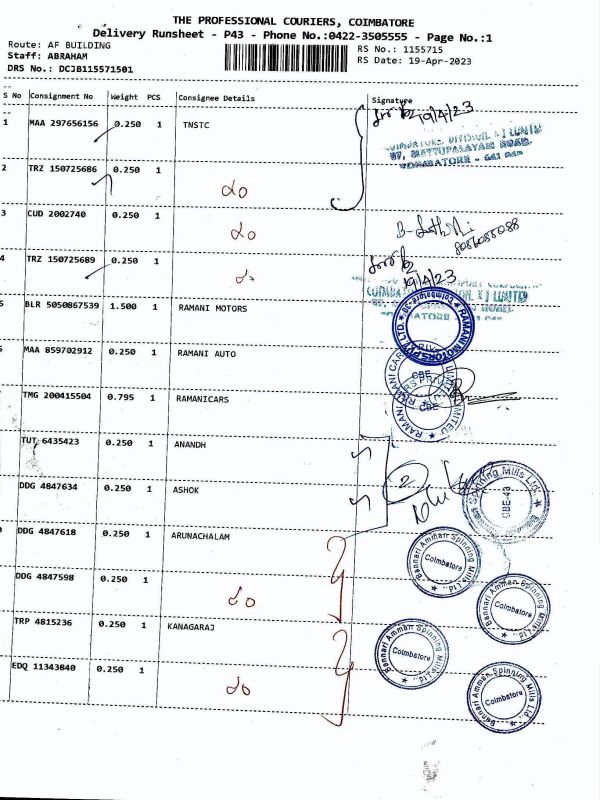 THE PROFESSIONAL COURIERS, COIMBATORE
Delivery Runsheet - P43 - Phone No.:0422-3505555 - Page No.:1
Route: AF BUILDING
RS No.: 1155715
Staff: ABRAHAM
RS Date: 19-Apr-2023
DRS No.: DCJB115571501
S No Consignment No Weight PCS Consignee Details Signature
1 MAA 297656156 0.250 1 TNSTC
19/4/23
COIMBATORE
2 TRZ 150725686 0.250 1
3 CUD 2002740 0.250 1
4 TRZ 150725689 0.250 1
19/4/23
BLR 5050867539 1.500 1 RAMANI MOTORS
RAMANI MOTORS PVT LTD. Coimbatore
MAA 859702912 0.250 1 RAMANI AUTO
TMG 200415504 0.795 1 RAMANICARS
RAMANI CARS PRIVATE LIMITED
CBE
TUT 6435423 0.250 1 ANANDH
DDG 4847634 0.250 1 ASHOK
2
Spinning Mills Ltd.
CBE-43
DDG 4847618 0.250 1 ARUNACHALAM
Bannari Amman Spinning Mills Ltd.,
Coimbatore
DDG 4847598 0.250 1
Bannari Amman Spinning Mills Ltd.,
Coimbatore
TRP 4815236 0.250 1 KANAGARAJ
Bannari Amman Spinning Mills Ltd.,
Coimbatore
EDQ 11343840 0.250 1
Bannari Amman Spinning Mills Ltd.,
Coimbatore